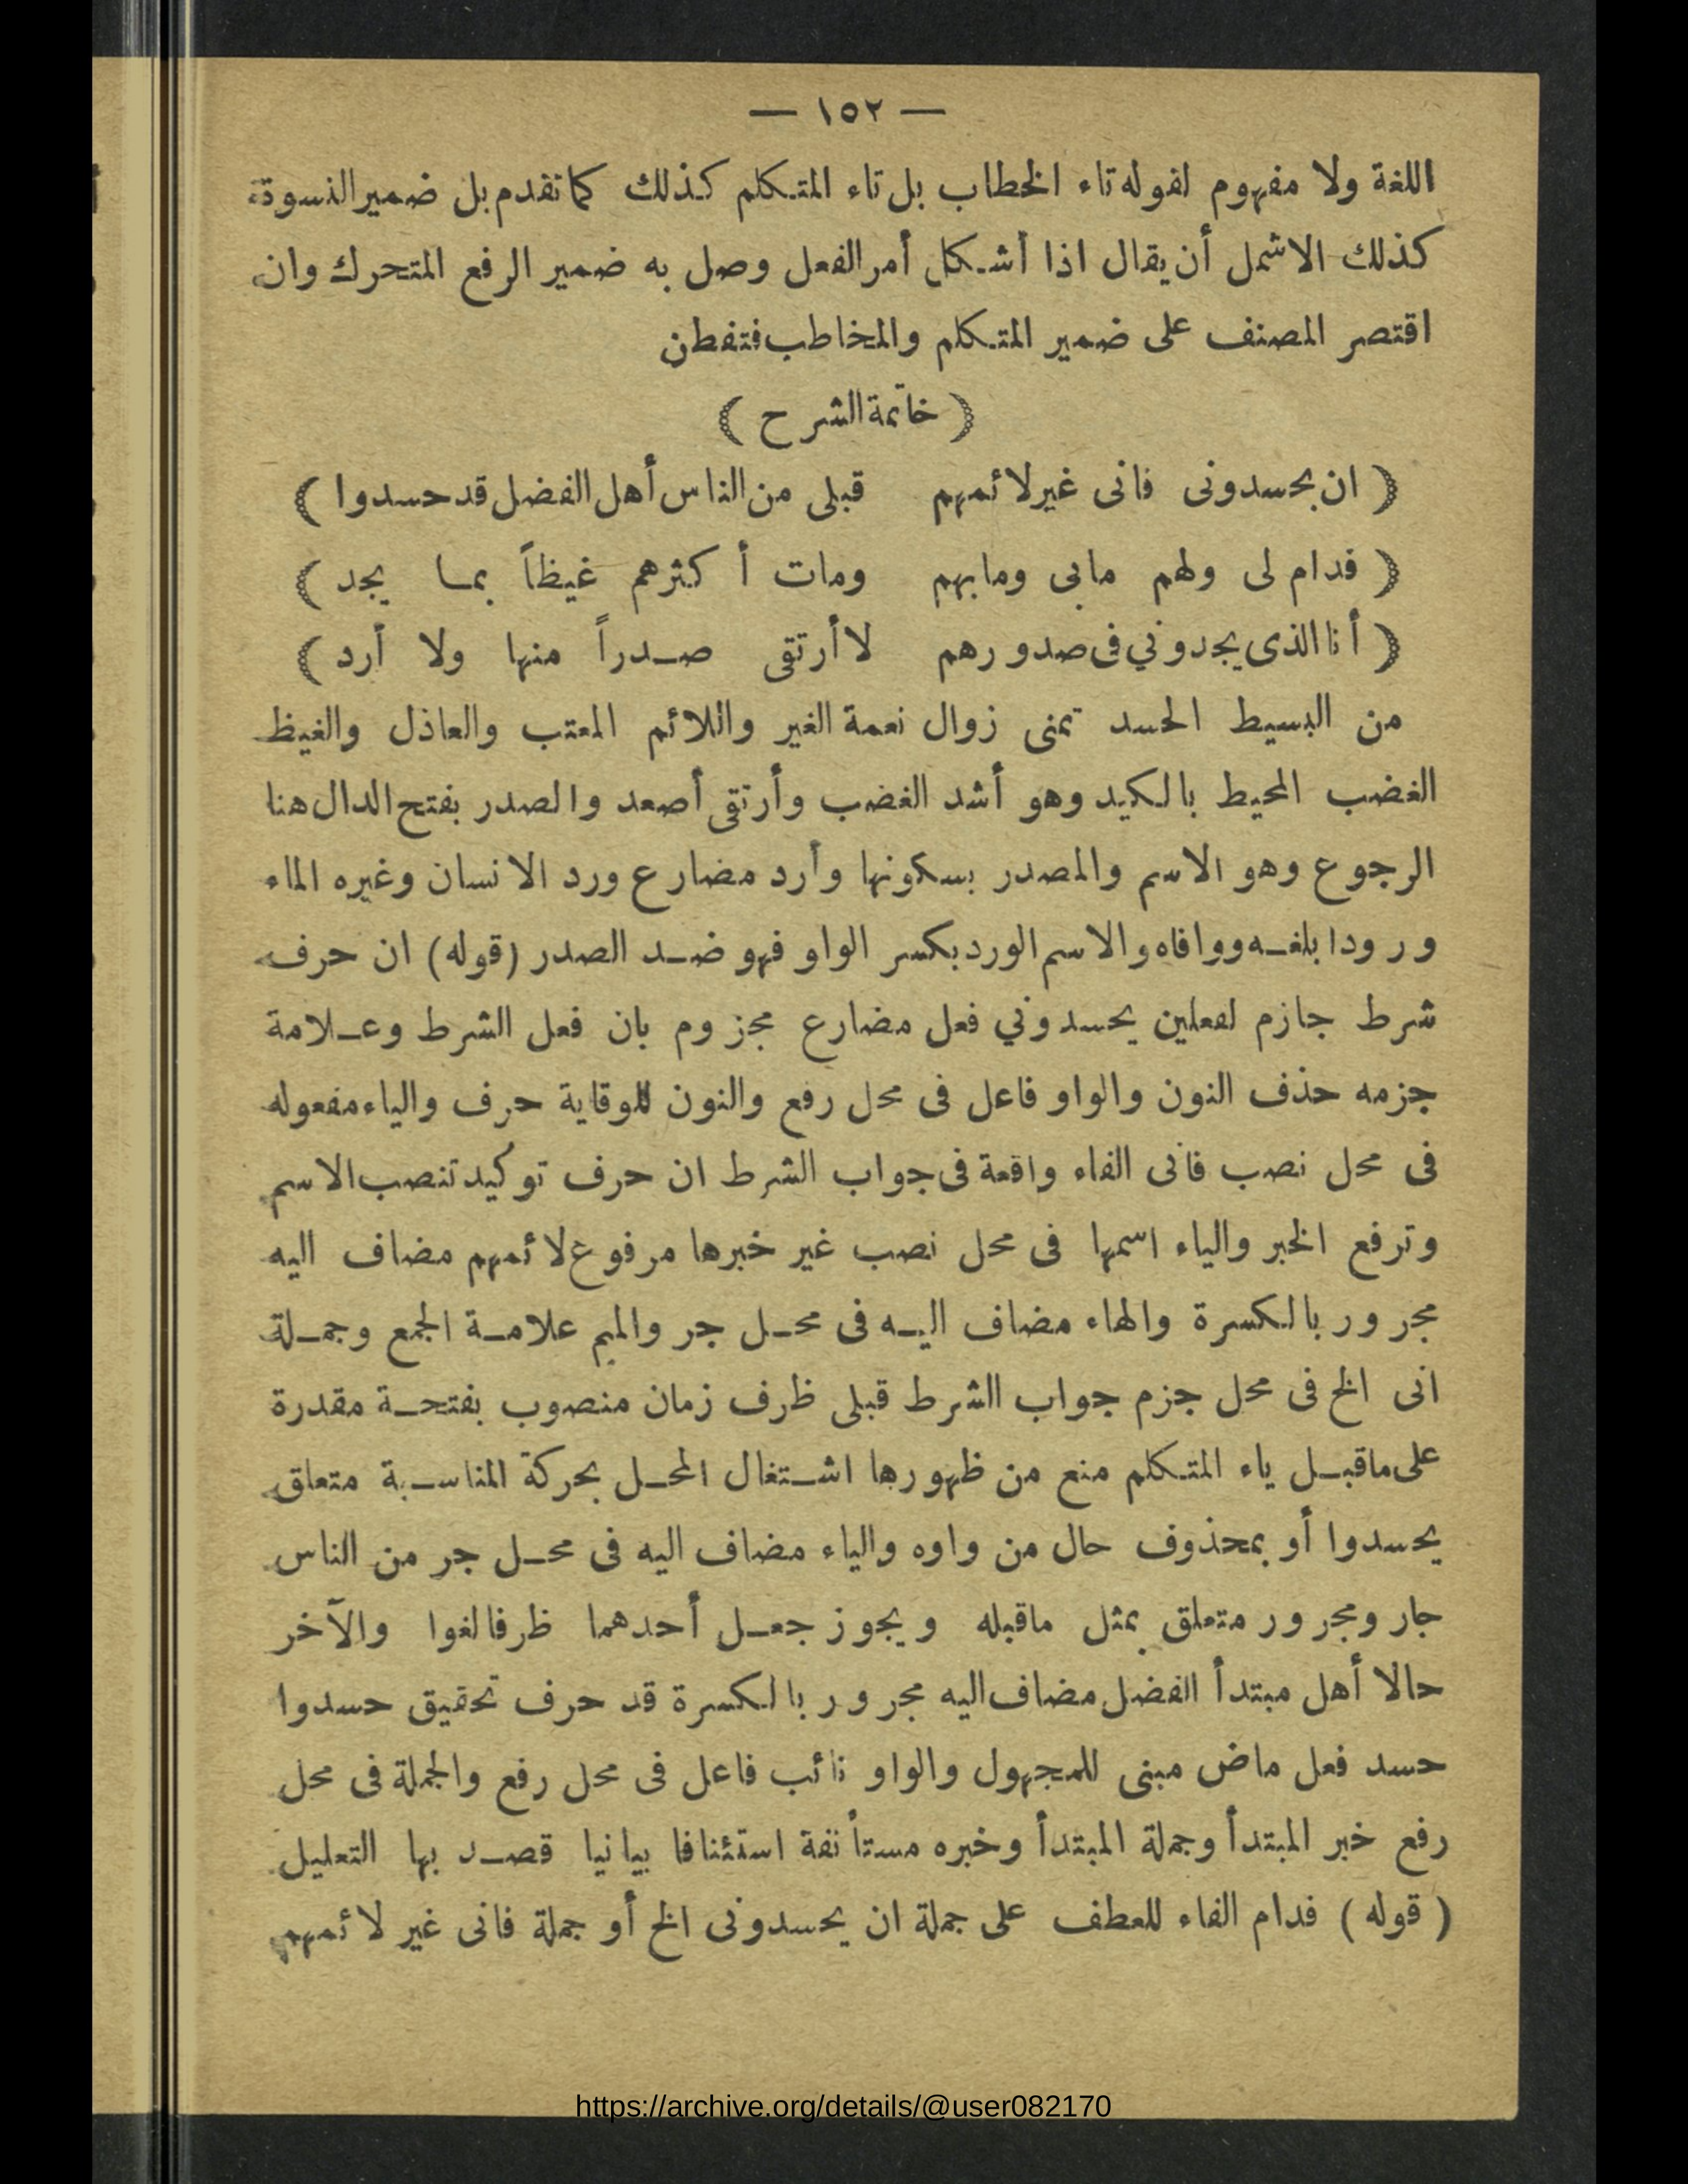 — ١٥٢ —
اللغة ولا مفهوم لقوله تاء الخطاب بل تاء المتكلم كذلك كما تقدم بل ضمير النسوة
كذلك الاشمل أن يقال اذا أشكل أمر الفعل وصل به ضمير الرفع المتحرك وان
اقتصر المصنف على ضمير المتكلم والمخاطب فتفطن
﴿ خاتمة الشرح ﴾
﴿ ان يحسدونى فانى غير لائمهم قبلى من الناس أهل الفضل قد حسدوا ﴾
﴿ فدام لى ولهم مابى ومابهم ومات أكثرهم غيظاً بما يجد ﴾
﴿ أنا الذى يجدوني فى صدورهم لا أرتقى صدراً منها ولا أرد ﴾
من البسيط الحسد تمنى زوال نعمة الغير واللائم المعتب والعاذل والغيظ
الغضب المحيط بالكبد وهو أشد الغضب وأرتقى أصعد والصدر بفتح الدال هنا
الرجوع وهو الاسم والمصدر بسكونها وأرد مضارع ورد الانسان وغيره الماء
ورودا بلغه ووافاه والاسم الورد بكسر الواو فهو ضد الصدر (قوله) ان حرف
شرط جازم لفعلين يحسدوني فعل مضارع مجزوم بان فعل الشرط وعلامة
جزمه حذف النون والواو فاعل فى محل رفع والنون للوقاية حرف والياء مفعوله
فى محل نصب فانى الفاء واقعة فى جواب الشرط ان حرف توكيد تنصب الاسم
وترفع الخبر والياء اسمها فى محل نصب غير خبرها مرفوع لائمهم مضاف اليه
مجرور بالكسرة والهاء مضاف اليه فى محل جر والميم علامة الجمع وجملة
انى الخ فى محل جزم جواب الشرط قبلى ظرف زمان منصوب بفتحة مقدرة
على ماقبل ياء المتكلم منع من ظهورها اشتغال المحل بحركة المناسبة متعلق
يحسدوا أو بمحذوف حال من واوه والياء مضاف اليه فى محل جر من الناس
جار ومجرور متعلق بمثل ماقبله ويجوز جعل أحدهما ظرفا لغوا والآخر
حالا أهل مبتدأ الفضل مضاف اليه مجرور بالكسرة قد حرف تحقيق حسدوا
حسد فعل ماض مبنى للمجهول والواو نائب فاعل فى محل رفع والجملة فى محل
رفع خبر المبتدأ وجملة المبتدأ وخبره مستأنفة استئنافا بيانيا قصد بها التعليل
( قوله ) فدام الفاء للعطف على جملة ان يحسدونى الخ أو جملة فانى غير لائمهم
https://archive.org/details/@user082170